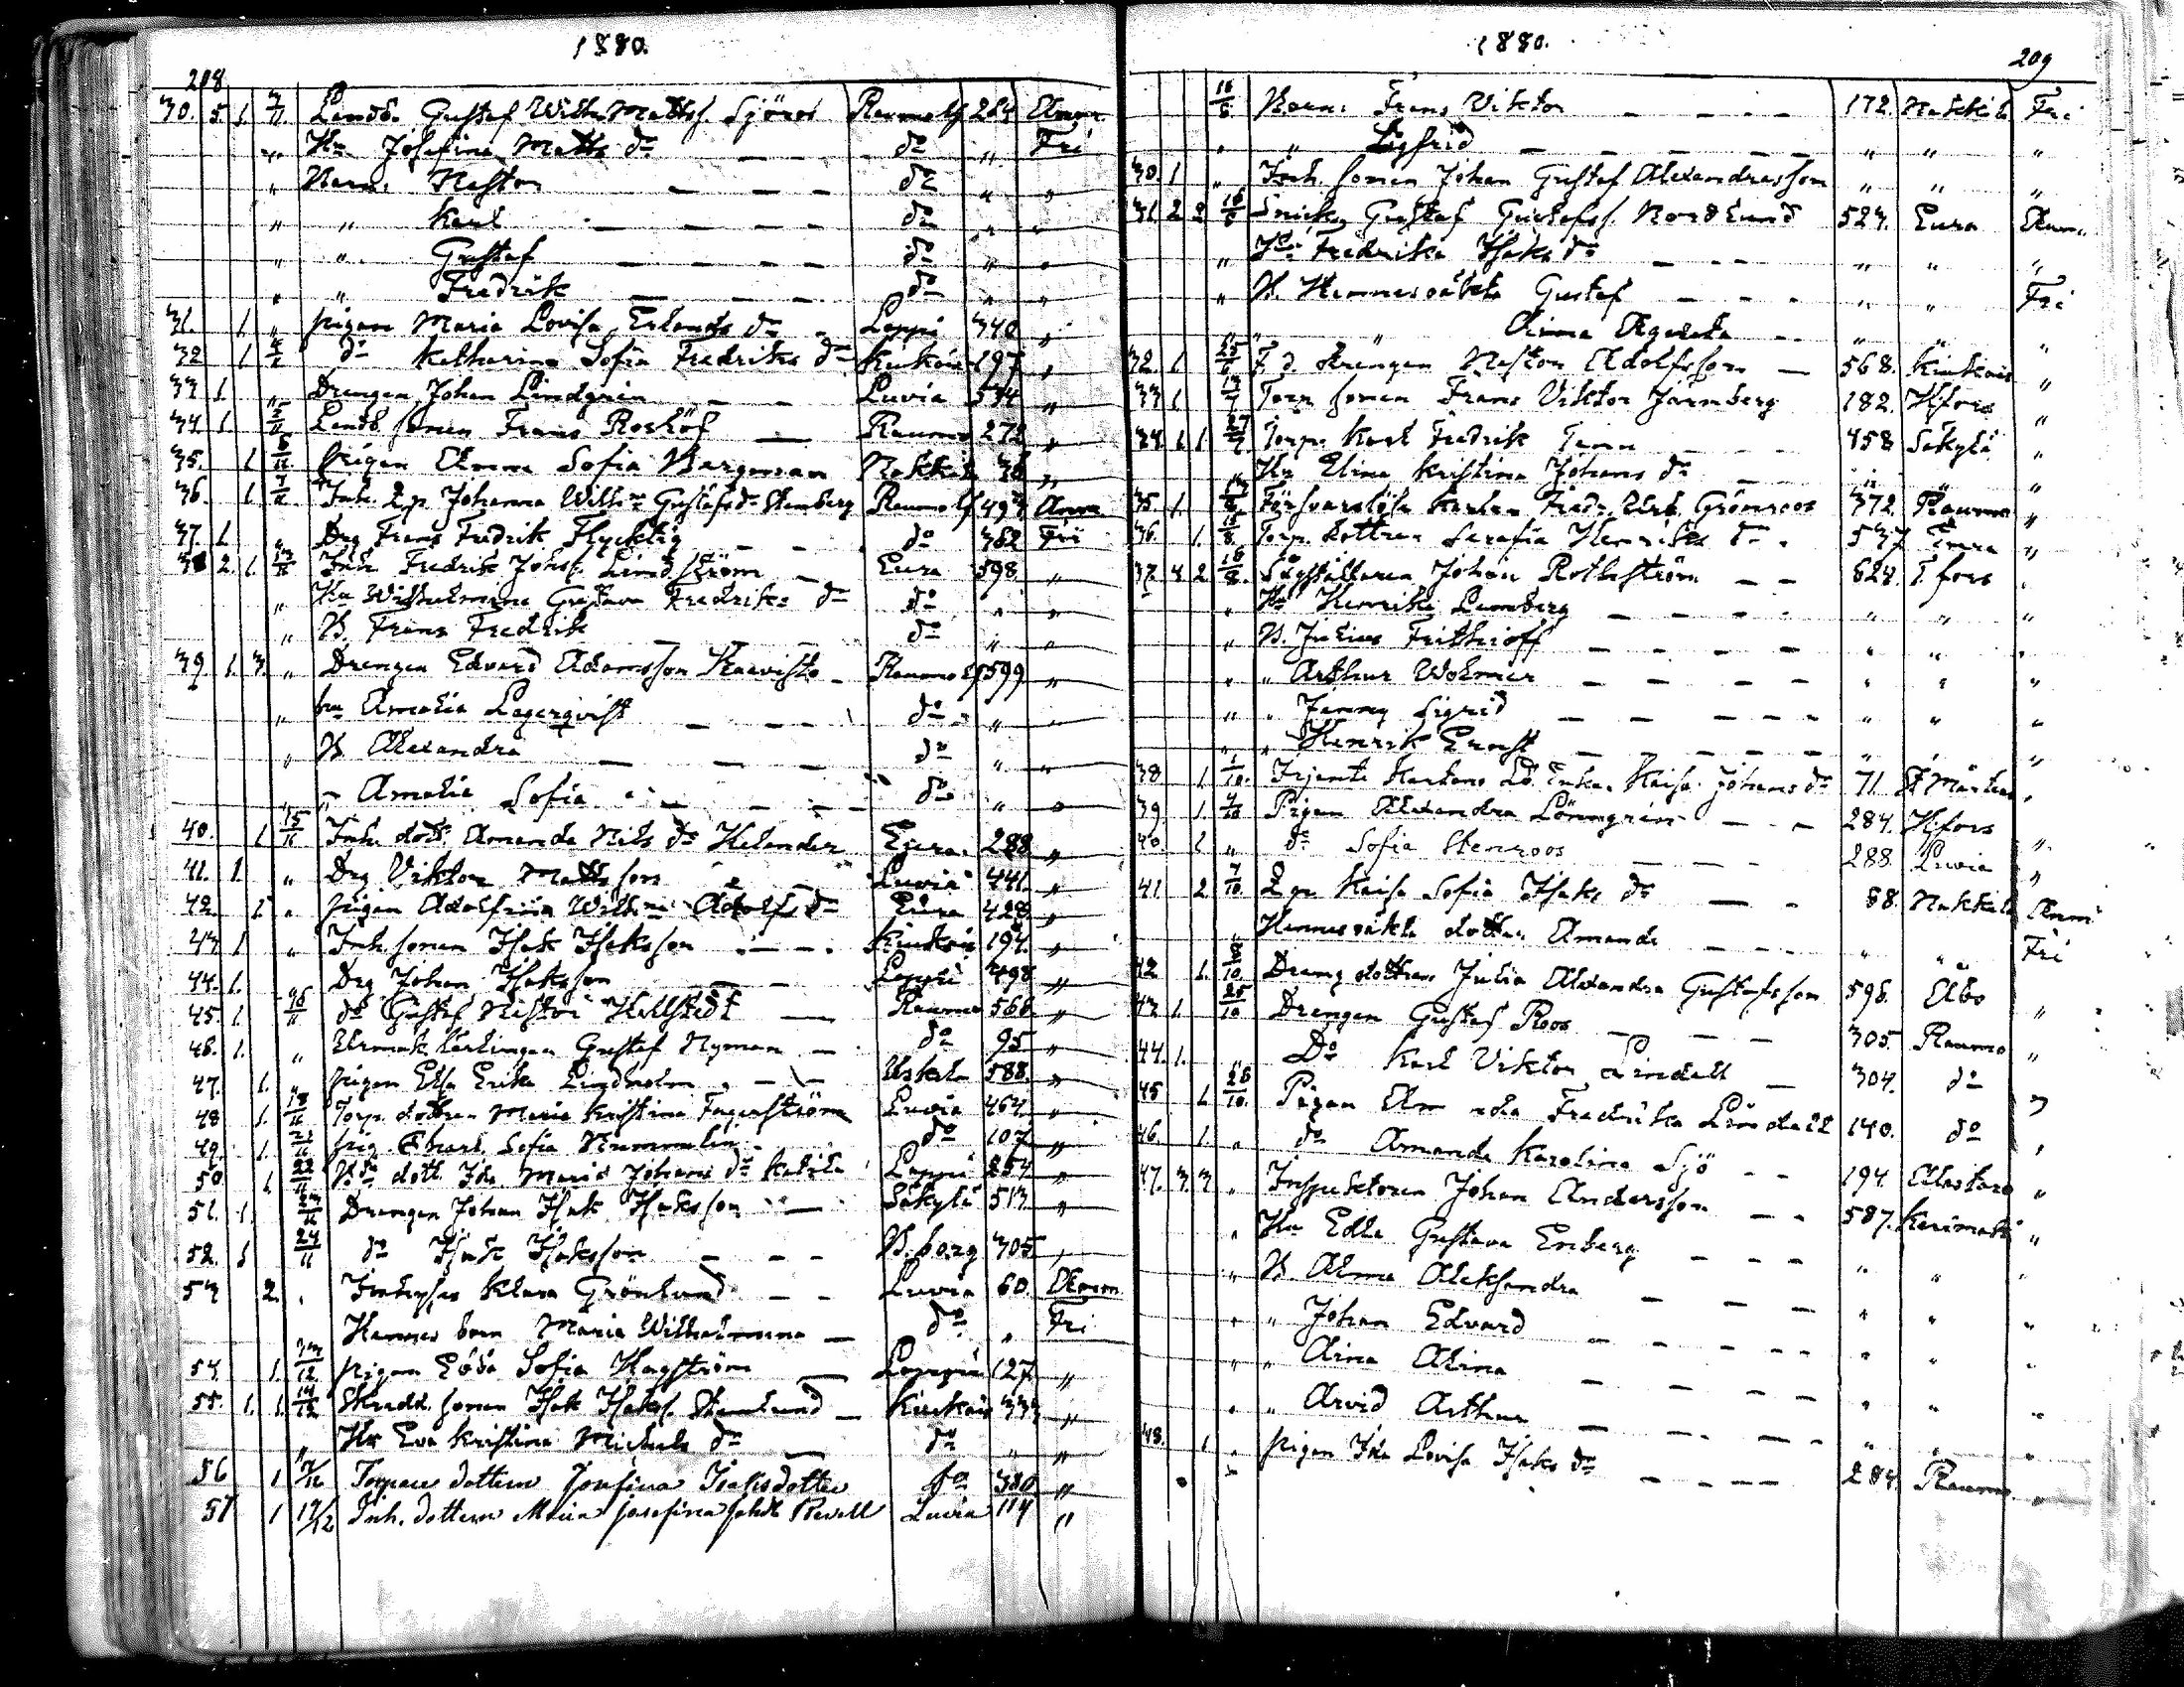 1880.
208
30. 5. 1. 3/11. Landb. Gustaf Wilh. Mattss. Sjöros Raumo lf 264 Anm.
" Hu Josefina Matts dr — — — do " Fri
" Barn: Nestor — — — do " "
" " Karl — — — do " "
" " Gustaf — — — do " "
" " Fredrik — — — do " "
31. 1. " pigan Maria Lovisa Erlands dr Lappi 340 "
32 1 4/11 do Katharina Sofia Fredriks dr Kiukais 197 "
33 1. " Drengen Johan Lindgrén — — Luvia 534 "
34. 1. 5/11 Landb. sonen Frans Roslöf — Raumo 272 "
35. 1. 6/11 pigan Amma Sofia Bergman Nakkila 38 "
36. 1. 7/11 Inh. Qp. Johanna Wilhna Gustafsdr Stenberg Raumo lf 493 Anm
37. 1. " Drg Frans Fredrik Flycktig — — do 382 Fri
38 2. 1. 13/11 Inh. Fredrik Johss. Lindström — Eura 598 "
" Hu Wilhelmina Gustava Fredriks dr do " "
" B. Frans Fredrik do " "
39. 1. 3. " Drengen Edvard Adamsson Haavisto — Raumo lf 599 "
" hu Amalia Lagerqvist — — — do " "
" B. Alexandra — — — do " "
" " Amalia Sofia — — — do " "
40. 1. 15/11 Inh. dott. Amanda Nils dr Helander Eura 288 "
41. 1. " Drg Viktor Mattsson — — Luvia 441. "
42. 1. " pigan Adolfina Wilhna Adolfs dr Eura 428 "
43 1. " Inh. sonen Isak Isaksson — — Kiukais 194. "
44. 1. " Drg Johan Isaksson — — Lappi 498 "
45 1. 16/11 do Gustaf Nestor Hellstedt — Raumo 566 "
46. 1. " Ehrmak. lärlingen Gustaf Nyman — do 95 "
47. 1. " pigan Elsa Erika Lindholm — — Uskela 588. "
48 1. 18/11 Torp. dottren Maria Kristina Fagerström Luvia 464. "
49. 1. 21/11 pig. Charl. Sofia Nummelin — do 107 "
50 1. 22/11 Bde dott. Ida Maria Johans dr Katila Lappi 254 "
51. 1. 23/11 Drengen Johan Isak Isaksson — Säkylä 513. "
52. 1 24/11 do Isak Isaksson — — — B.borg 305 "
53 2. " Inhyses Klara Grönlund — — Luvia 60. Anm
Hennes barn Maria Wilhelmina — do " Fri
54. 1. 3/12 pigan Edda Sofia Hagström — Lappi 127 "
55. 1. 1. 14/12 Skradd. sonen Isak Isakss. Stenlund — Kiukais 333 "
" Hu Eva Kristina Michels dr — do " "
56 1 17/12 Torpare dottern Josefina Isaksdotter do 380 "
57 1 17/12 Inh. dottern Maria Josefina Jakobs Revell Luvia 114 "
1880.
209
16/6 Barn: Frans Viktor — — — 172. Nakkila Fri
" " Sigfrid — — — " " "
30. 1 " Inh. sonen Johan Gustaf Alexandersson " " "
31 2 2 16/6 Snick. Gustaf Gustafss. Nordlund 524. Eura Anm.
" Hu Fredrika Isaks dr — — — " " "
" B. Hennes oäkta Gustaf — — — " " Fri
" " " Anna Agatha — — " " "
32. 1 F. d. drengen Nestor Adolfsson — 568. Kiukais "
33 1 Torp. sonen Frans Viktor Järnberg 182. H:fors "
34. 1. 1 Torp. Karl Fredrik — — 458 Säkylä "
" Hu Elina Kristina Johans dr — " " "
35. 1. Försvarslöse Karlen Fredr. Grönroos 372. Raumo "
36. 1. 12/8 Torp. dottren Serafia Henriks dr . 537. Eura "
37. 4 2 18/8. Johan Rothström — — 624. T.fors "
" Hu Henrika Lumberg — — — " " "
" B. Julius Frithioff — — — " " "
" " Arthur Wolmar — — — " " "
" " Jenny Sigrid — — — " " "
" " Henrik Ernst — — — " " "
38 1. 1/10. Kaisa Johans dr 71 St Mårtens "
39. 1. 4/10 Pigan Alexandra Lönngrén — — 284. H:fors "
40. 1 " do Sofia Stenroos — — 288 Luvia "
41 2 7/10. Qp. Kaisa Sofia Isaks dr — — 88. Nakkila Anm
" Hennes oäkta dotter Amanda — — " " Fri
42 1. 8/10. Dreng dottren Julia Alexandra Gustafsson 596. Åbo "
43 1. 25/10 Drengen Gustaf Roos — — — 305. Raumo "
44. 1. " Do Karl Viktor Lindell — 304. do "
45 1. 26/10. Pigan Fredrika Lindell 140. do "
46. 1. " do Amanda Karolina Sjö — — 194. Alastaro "
47. 3. 3 " Inspektoren Johan Andersson — — 587. Kerimäki "
" Hu Edla Gustava Enberg — — — " " "
" B. Alma Aleksandra — — — " " "
" " Johan Edvard — — — " " "
" " Aina Alina — — — " " "
" " Arvid Arthur — — — " " "
48. 1 " pigan Ida Lovisa Isaks dr — — — 284. Raumo "